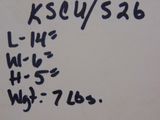 KSCU/S26
L-14"
W-6"
H-5"
Wgt: 7 Lbs.